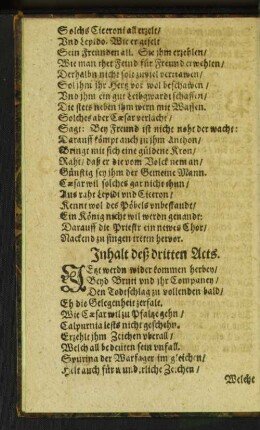 Solchs Ciceroni all erzelt/
Vnd Lepido. Wie er giselt
Sein Freunden all. Sie ihm erzehlen/
Wie man thet Feind für Freund erwehlen/
Derhalbn nicht solt zuviel vertrawen/
Sol ihm ihr Hertz vor wol beschawen/
Vnd ihm ein gut Leibgwardi schaffen/
Die stets neben ihm wern mit Waffen.
Solches aber Cæsar verlacht/
Sagt: Bey Freund ist nicht noht der wacht:
Darauff kömpt auch zu ihm Anthon/
Bringt mit sich eine güldene Kron/
Raht/ daß er die vom Volck nem an/
Günstig sey ihm der Gemeine Mann.
Cæsar wil solches gar nicht thun/
Aus raht Lepidi vnd Ciceron/
Kennt wol des Pöbels vnbestandt/
Ein König nicht wil werdn genandt:
Darauff die Priestr ein newes Chor/
Nackend zu singen trettn hervor.
Inhalt deß dritten Acts.
JEtzt werdn wider kommen herbey/
Beyd Bruti vnd ihr Companey/
Den Todtschlag zu vollenden bald/
Eh die Gelegenheit zerfalt.
Wie Cæsar wil zu Pfalz gehn/
Calpurnia lests nicht geschehn.
Erzehlt ihm Zeichen vberall/
Welch all bedeuten sein vnfall.
Spurina der Warsager im gleichen/
Helt auch für wunderliche Zeichen/
Welche